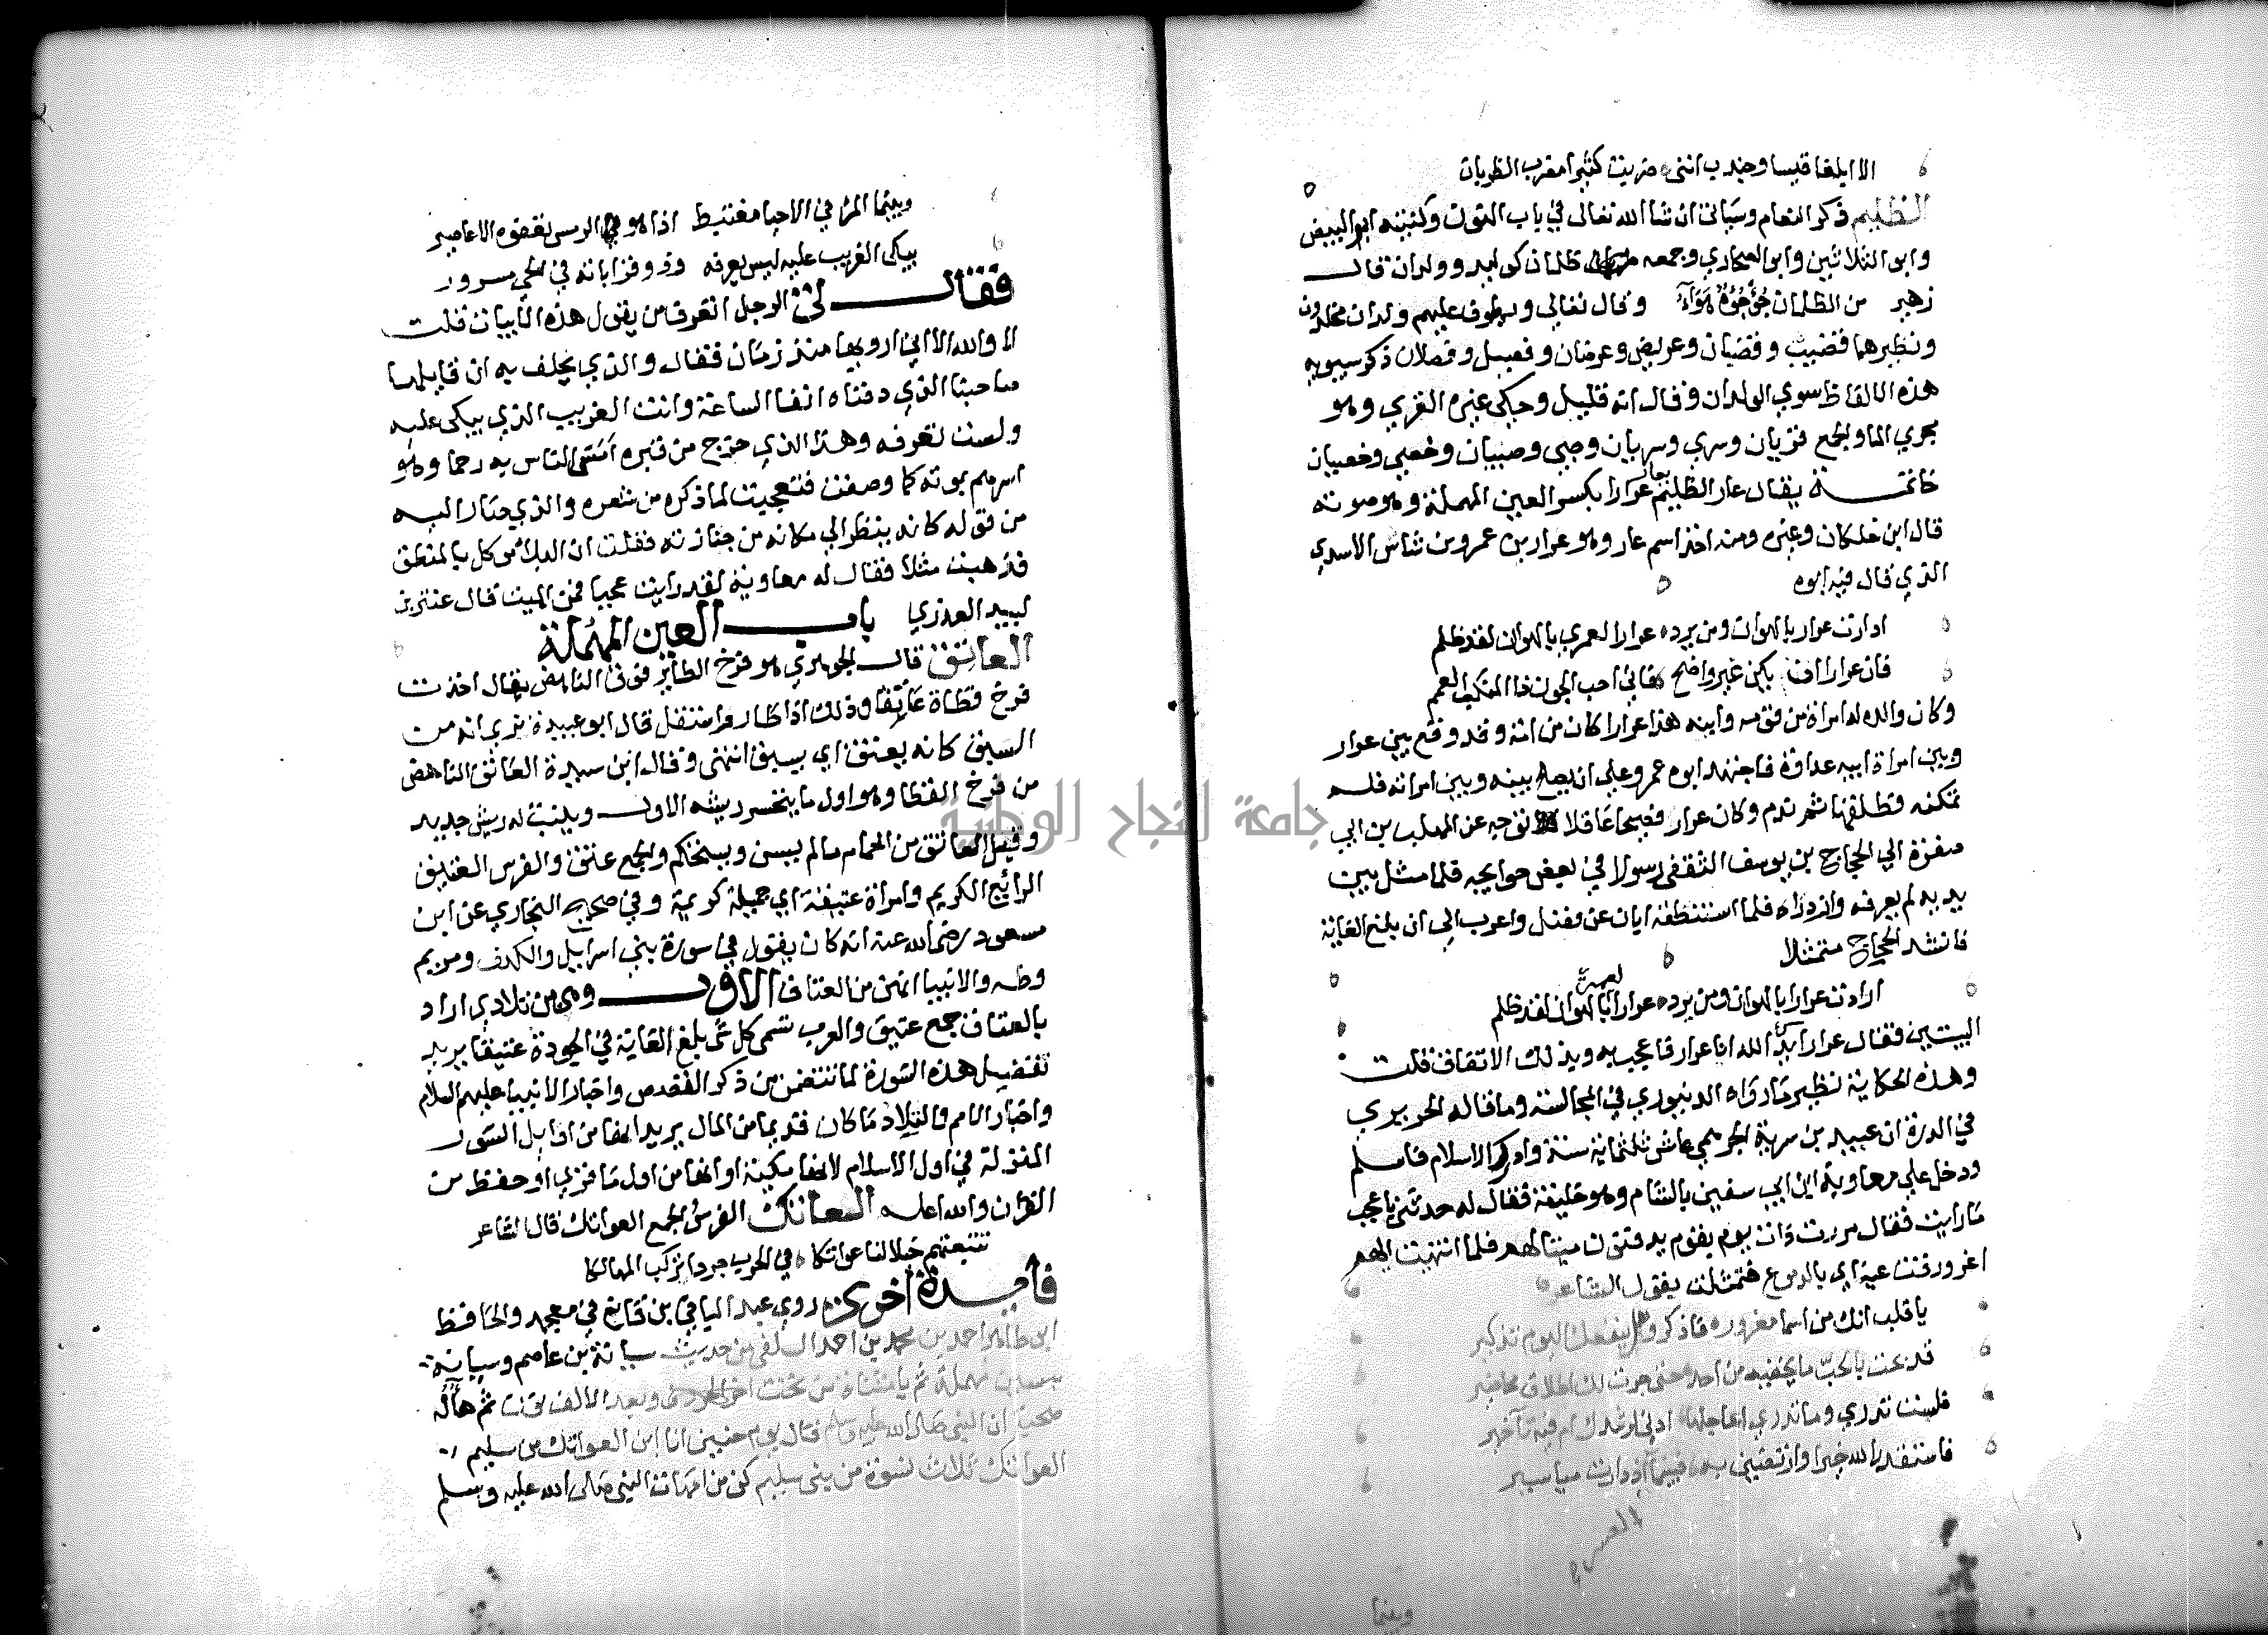 الا ابلغا قيسا وجندب انني ضربت كثيرا مضرب الظربان
الظليم ذكر النعام وسياتي ان شا الله تعالى في باب النون وكنيته ابو البيض
وابو الثلاثين وابو الصحاري وجمعه ظلمان كوليد وولدان قال
زهير من الظلمان جؤجؤه هواء وقال تعالي ويطوف عليهم ولدان مخلدون
ونظيرهما قضيب وقضبان وعريض وعرضان وفصيل وفصلان ذكر سيبويه
هذه الالفاظ سوي الولدان وقال انه قليل وحكي غيره القري وهو
مجري الما والجمع قريان وسري وسريان وصبي وصبيان وخصي وخصيان
خاتمة يقال عار الظليم يعار عرارا بكسر العين المهملة وهو صوته
قال ابن خلكان وغيره ومنه اخذ اسم عار وهو عرار بن عمرو بن شاس الاسدي
الذي قال فيه ابوه
ارادت عرار بالهوان ومن يرده عرارا لعمري بالهوان لقد ظلم
فان عرارا ان يكن غير واضح فاني احب الجون ذا المنكب العمم
وكان والده له امراة من قومه وابنه هذا عرارا كان من امة وقد وقع بين عرار
وبين امراة ابيه عداوة فاجتهد ابوه عمرو علي ان يصلح بينه وبين امراته فلم
تمكنه فطلقها ثم ندم وكان عرار فصيحا عاقلا توجه عن المهلب بن ابي
صفرة الي الحجاج بن يوسف الثقفي رسولا في بعض حوايجه فلما مثل بين
يديه لم يعرفه وازدراه فلما استنطقه ابان عن فضل واعرب الي ان بلغ الغاية
فانشد الحجاج متمثلا
ارادت عرارا بالهوان ومن يرده عرارا لعمري بالهوان لقد ظلم
البيتين فقال عرار ايدك الله انا عرار فاعجب به وبذلك الاتفاق قلت
وهذه الحكاية نظير ما رواه الدينوري في المجالسة وما قاله الحريري
في الدرة ان عبيد بن سرية الجرهمي عاش ثلثماية سنة وادرك الاسلام فاسلم
ودخل علي معاوية ابن ابي سفين بالشام وهو خليفة فقال له حدثني باعجب
ما رايت فقال مررت ذات يوم بقوم يدفنون ميتا لهم فلما انتهيت اليهم
اغرورقت عيناي بالدموع فتمثلت بقول الشاعر
يا قلب انك من اسما مغرور فاذكر وهل ينفعك اليوم تذكير
قد بحت بالحب ما يخفيه من احد حتي جرت لك اطلاق محاضير
فلست تدري وما تدري اعاجلها ادني لرشدك ام فيه تآخير
فاستقدر الله خيرا وارتضين به فبينما اذ دارت مياسير
العسر
وبينما
وبينما المرء في الاحيا مغتبط اذا هو في الرمس تعفوه الاعاصير
يبكي الغريب عليه ليس يعرفه وذو قراباته في الحي مسرور
فقال لي الرجل اتعرف من يقول هذه الابيات قلت
لا والله الا اني ارويها منذ زمان فقال والذي يحلف به ان قايلها
صاحبنا الذي دفناه انفا الساعة وانت الغريب الذي يبكي عليه
ولست تعرفه وهذا الذي خرج من قبره امس الناس به رحما وهو
اسرهم بموته كما وصفت فتعجبت لما ذكره من شعره والذي صار اليه
من قوله كانه ينظر الي مكانه من جنازته فقلت ان البلا موكل بالمنطق
فذهبت مثلا فقال له معاوية لقد رايت عجبا فمن الميت قال عثير بن
لبيد العذري باب العين المهملة
العاتق قال الجوهري هو فرخ الطاير فوق الناهض يقال اخذت
فرخ قطاة عاتقا وذلك اذا طار واستقل قال ابو عبيدة نري انه من
السبق كانه يعتق اي يسبق انتهي وقال ابن سيدة العاتق الناهض
من فرخ القطا وهو اول ما ينحسر ريشه الاول وينبت له ريش جديد
وقيل العاتق من الحمام ما لم يسن ويستحكم والجمع عتق والفرس العتيق
الرائع الكريم وامراة عتيقة اي جميلة كريمة وفي صحيح البخاري عن ابن
مسعود رضي الله عنه انه كان يقول في سورة بني اسرايل والكهف ومريم
وطه والانبيا انهن من العتاق الاول وهن من تلادي اراد
بالعتاق جمع عتيق والعرب تسمي كل شي بلغ الغاية في الجودة عتيقا يريد
تفضيل هذه السورة لما تتضمن من ذكر القصص واخبار الانبيا عليهم السلام
واخبار الامم والتلاد ما كان قديما من المال يريد انها من اوايل السور
المنزلة في اول الاسلام لانها مكية او انها من اول ما قري او حفظ من
القران والله اعلم العاتك الفرس الجمع العواتك قال الشاعر
نتبعهم خيلا لنا عواتكا في الحرب جردا تركب المهالكا
فايدة اخري روي عبد الباقي بن قانع في معجمه والحافظ
ابو طاهر احمد بن محمد بن احمد السلفي من حديث سيابة بن عاصم وسيابة
بسين مهملة ثم يا مثناة من تحت اخر الحروف وبعد الالف ثم هاله
صحبة ان النبي صلي الله عليه وسلم قال يوم حنين انا ابن العواتك من سليم
العواتك ثلاث نسوة من بني سليم كن من امهات النبي صلي الله عليه وسلم
جامعة النجاح الوطنية